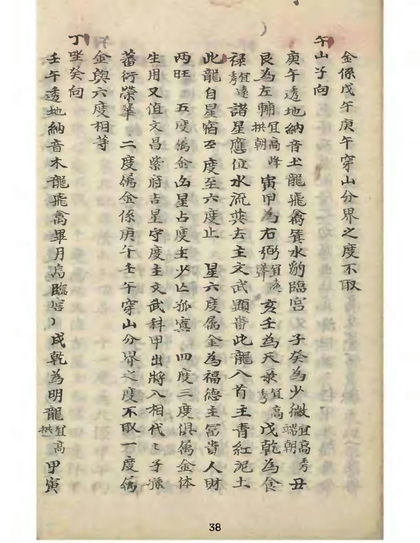 金係戊午庚午穿山分界之度不取
午山子向
庚午透地納音土龍飛禽箕水豹臨宫 子癸為少微宜高秀端朝丑
艮為左輔宜高峰拱朝寅甲為右弼宜 亥壬為天 宜高 戌乾為食
祿宜遠諸星應位水流 去主文武顯貴此龍入首主青紅泥土
此龍自星宿 度至六度止 星六度属金為福德主富貴人財
兩旺 五度属金 星占度主少亡孤寡 四度三度俱属金体
生用又值文昌紫府吉星守度主文武科甲出將入相代々子孫
蕃衍榮華 二度属金係庚午壬午穿山分界之度不取一度属
金與六度相等
丁坐癸向
壬午透地納音木龍飛禽畢月烏臨宫 戌乾為明龍宜高拱 甲寅
38